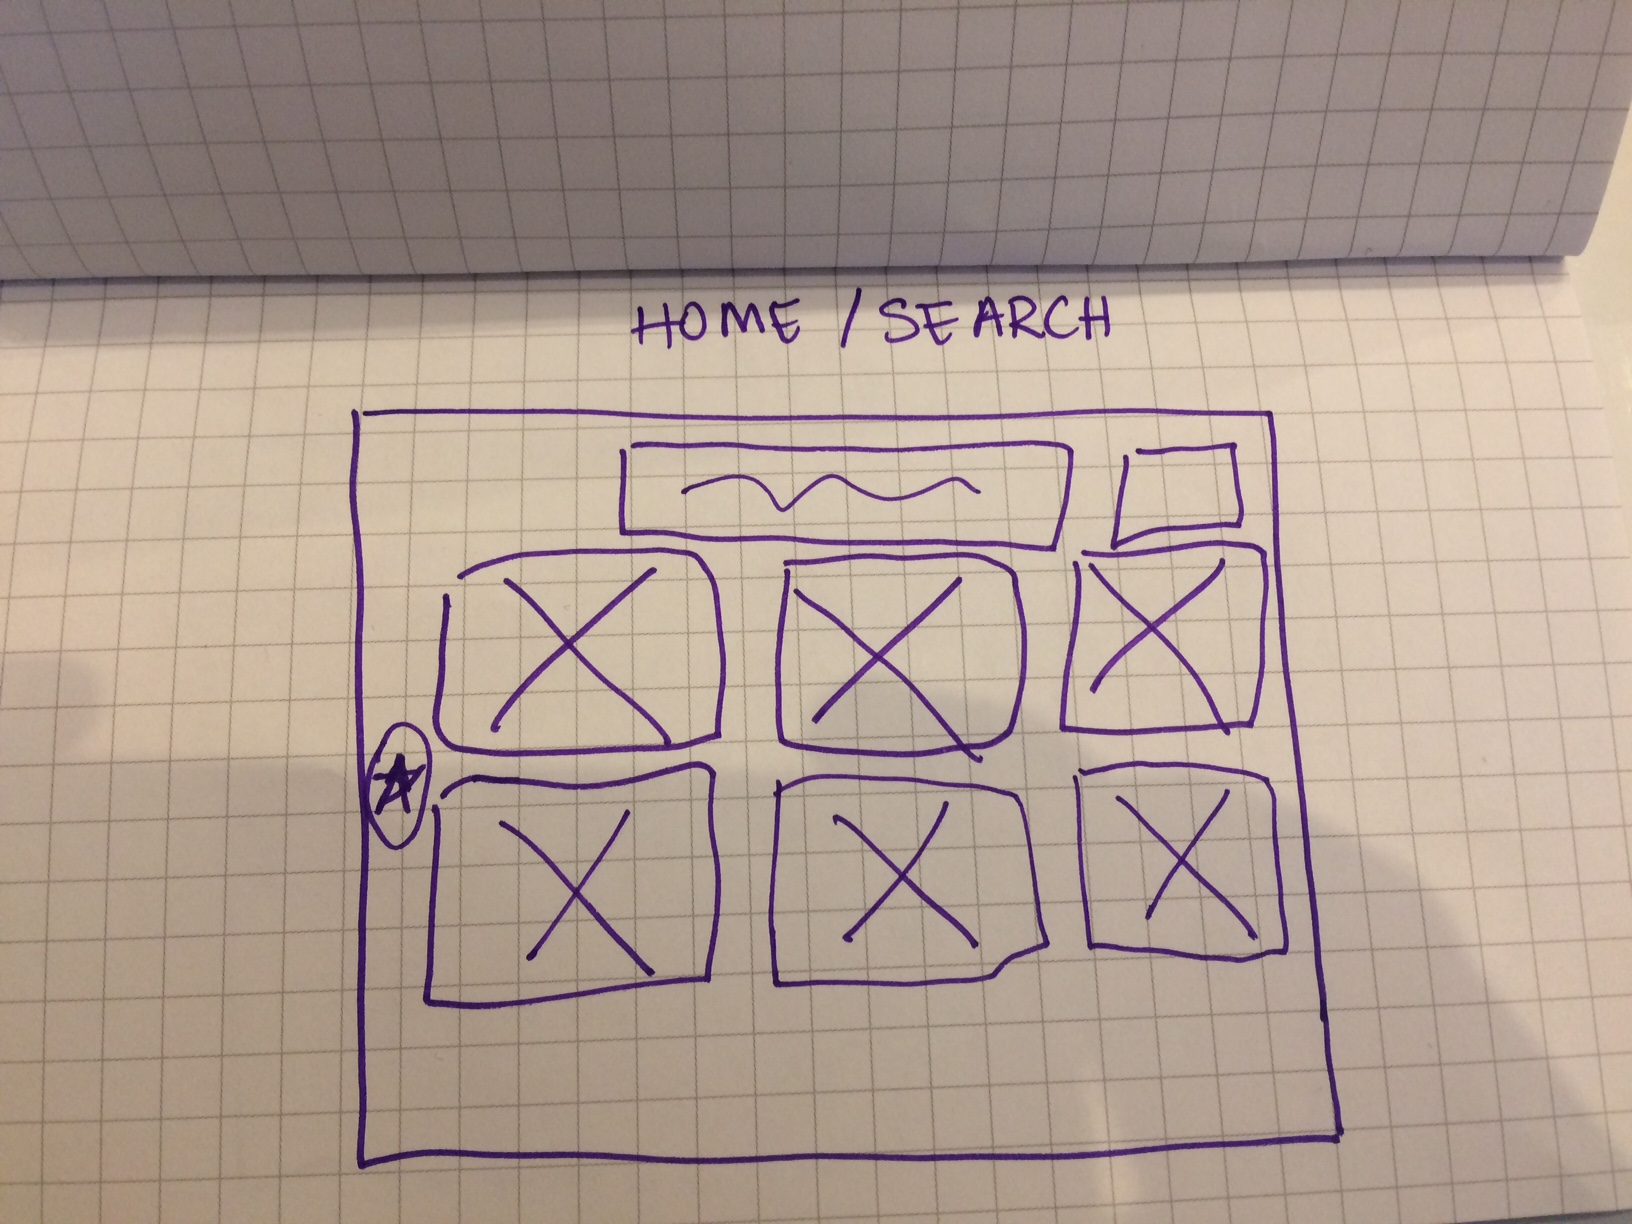 HOME / SEARCH